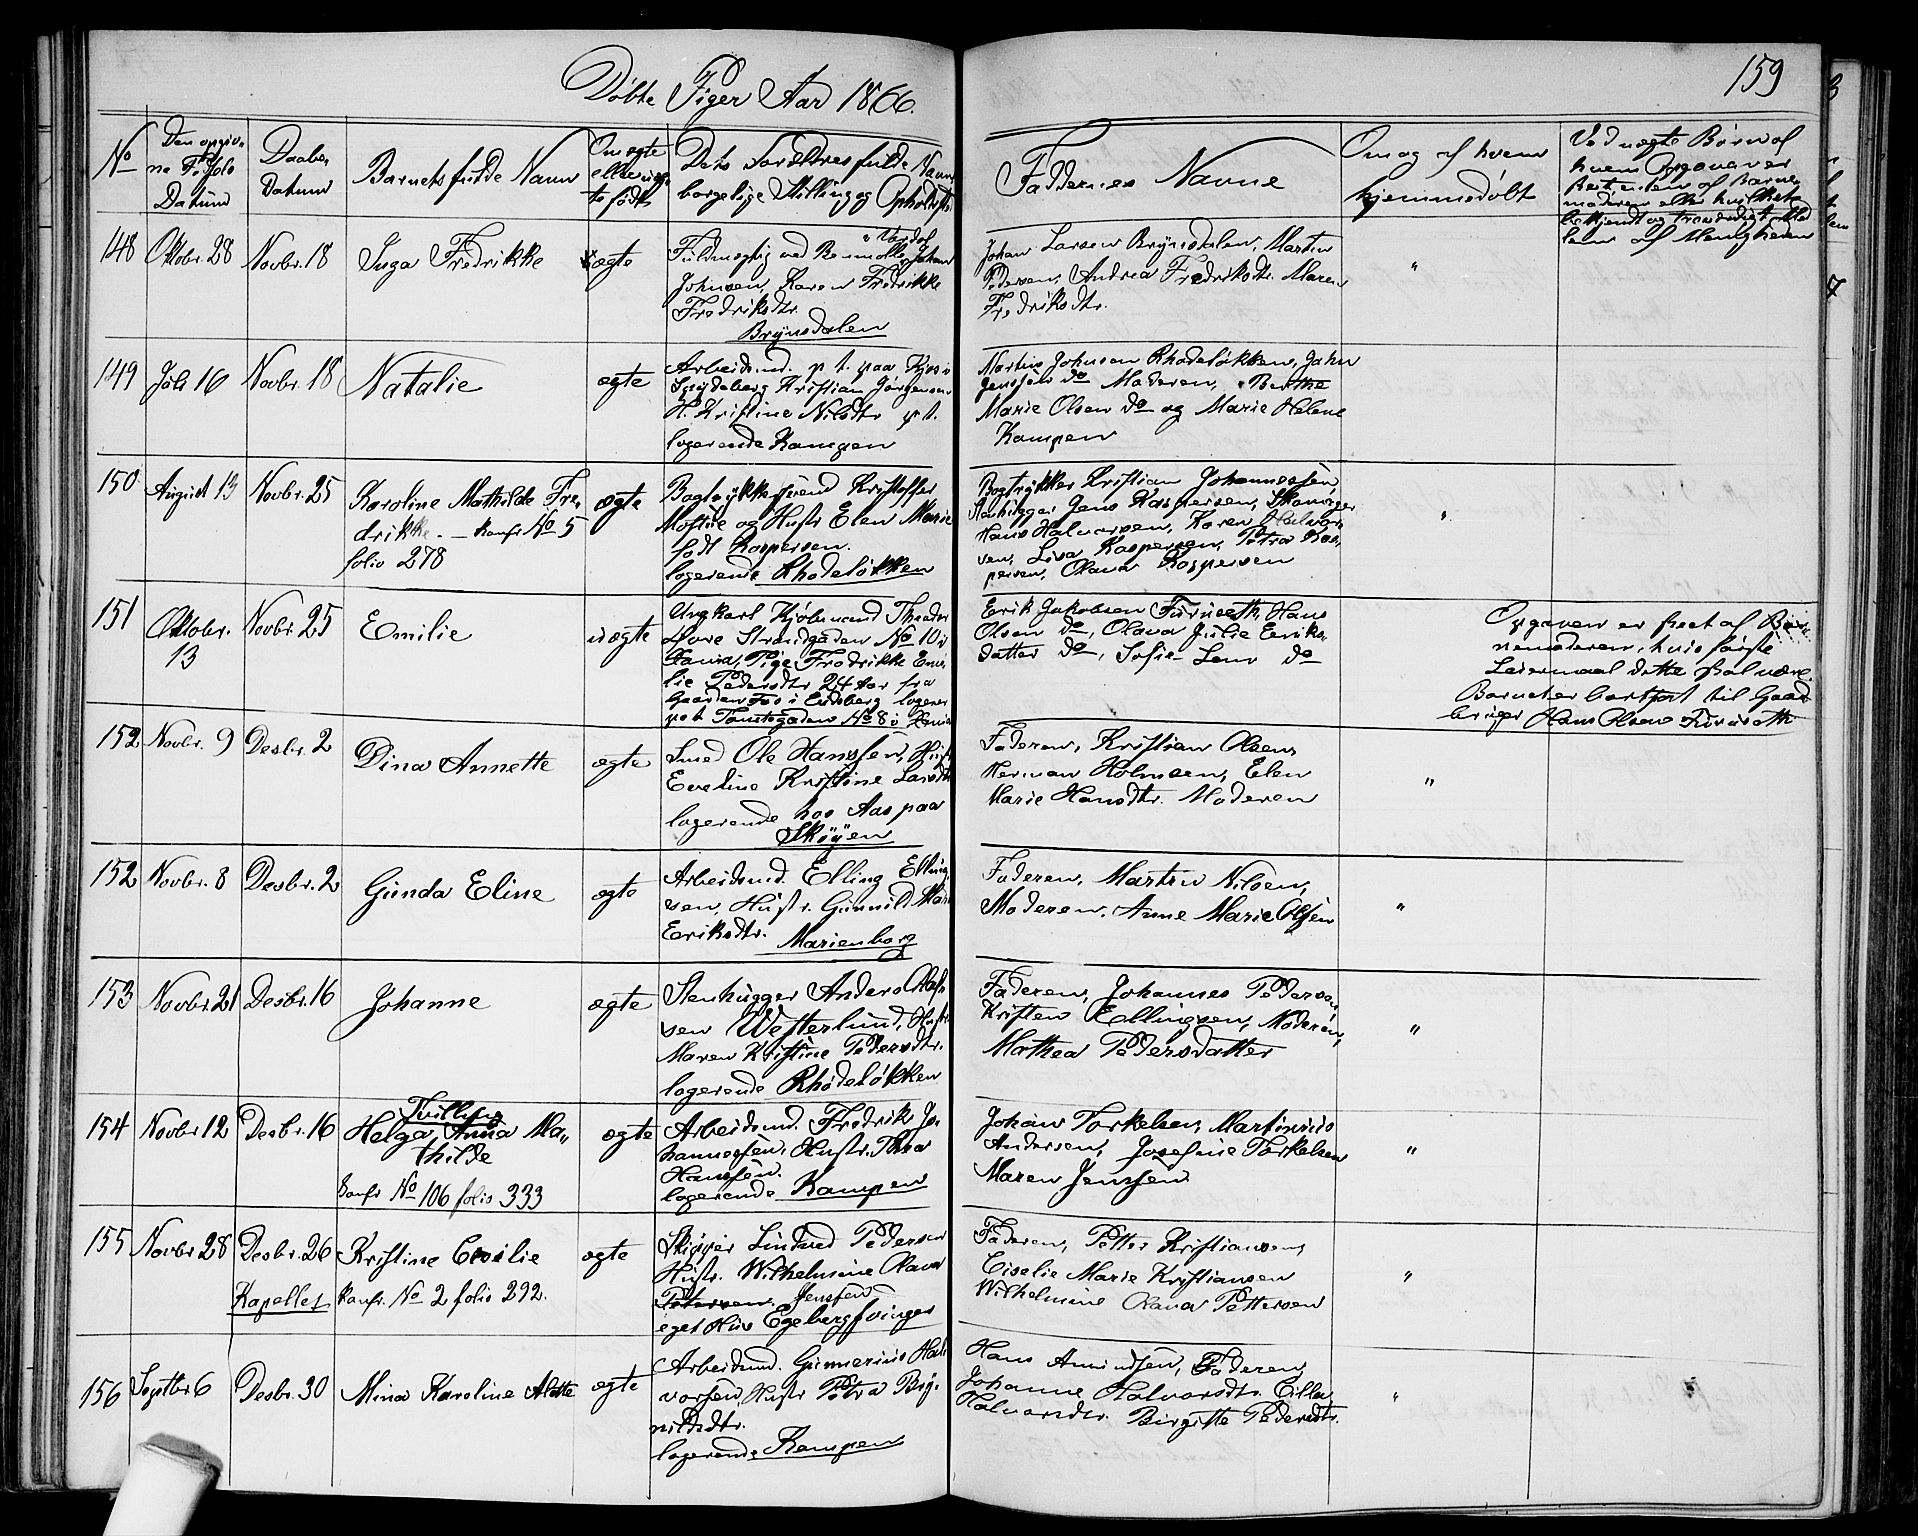 Døbte Piger Aar 1866.
159
No
Den opgiv-
ne Fødsels
Datum
Daabs
Datum
Barnets fulde Navn
Om ægte
eller uæg-
te født
Dets Forældres fulde Navne
borgelige Stilling og Opholdsst
Faddernes Navne
Om og af hvem
hjemmedøbt
Ved uægte Børn af
hvem Opgaven er
148 Oktobr. 28 Novbr. 18 Inga Fredrikke uægte
Fuldmægtig ved
Johnsen, Karen Fredrikke
Fredriksdtr.
Brynsdalen
Johan Larsen Brynsdalen, Martin
Pedersen, Andrea Fredriksdtr. Maren
Fredriksdtr.
"
149 Juli 16 Novbr. 18 Natalie ægte
Arbeidsmd. p. t. paa Kjos i
Spydeberg Kristian Jørgensen
H. Kristine Nilsdtr p. t.
logerende Kampen
Martin Johnsen Rhodeløkken, John
Jenssen do Moderen, Berthe
Marie Olsen do og Marie Helene
Kampen
150 August 13 Novbr. 25 Karoline Mathilde Fre-
drikke. - konfr. No 5
folio 278
ægte
Bogtrykkersvend Kristoffer
og Hustr Elen Marie
født Kaspersen.
logerende Rhodeløkken
Bogtrykker Kristian Johannessen,
Stenhugger Jens Kaspersen, Skomager
Hans Halvorsen, Karen Halvor-
sen, Lisa Kaspersen, Petra Kas-
persen, Olava Kaspersen
"
151 Oktobr. 13 Novbr. 25 Emilie uægte
Ungkarl Kjøbmand Theodor
Strandgaden No 10 i
Pige Fredrikke Emi-
lie Pedersdtr 24 Aar fra
Gaarden Foss i Eidsberg logerer
p t Tomtegaden No 8 i
Erik Jakobsen Furuseth, Hans
Olsen do, Olava Julie Eriks-
datter do, Sofie Lem do
Opgaven er skeet af Bar-
nemoderen, hvis første
Leiermaal dette skal være.
Barnet er bortsat til Gaard-
bruger Hans Olsen Furuseth
152 Novbr. 9 Desbr. 2 Dina Annette ægte
Smed Ole Hanssen, Hustr
Eveline Kristine Larsdtr
logerende hos Aas paa
Skøyen
Faderen, Kristian Olsen,
Herman Holmsen, Elen
Marie Hansdtr. Moderen
"
152 Novbr. 8 Desbr. 2 Gunda Eline ægte
Arbeidsmd. Elling Elling-
sen, Hustr. Gunnild Marie
Eriksdtr. Marienborg
Faderen, Martin Nilsen,
Moderen, Anne Marie Olsen
"
153 Novbr. 21 Desbr. 16 Johanne ægte
Stenhugger Anders Olaf-
sen Westerlund, Hustr
Maren Kristine Pedersdtr.
logerende Rhodeløkken
Faderen, Johannes Pedersen,
Kristen Ellingsen, Moderen,
Mathea Pedersdatter
"
154 Novbr 12 Desbr. 16
Tvilling
Helga Anna Ma-
thilde
konfr No 106 folio 333
ægte
Arbeidsmd. Fredrik Jo-
hannessen, Hustr. Thea
Hanssen.
logerende Kampen
Johan Torkelsen, Martinius
Andersen, Josefine Torkelsen
Maren Jenssen
"
155 Novbr 28 Desbr. 26
Kapellet
Kristine Cecilie
konfr. No 2 folio 292.
ægte
Skipper Lindved Pedersen
Hustr. Wilhelmine Olava
Petersen Jenssen
eget Huus Egebergsvinger
Faderen, Petter Kristiansen,
Ciselie Marie Kristiansen
Wilhelmine Olava Pettersen
"
156 Septbr 6 Desbr. 30 Mina Karoline Alette ægte
Arbeidsmd. Gunnerius Hal-
vorsen, Hustr Petra Bry-
nildsdtr.
logerende Kampen
Hans Amundsen, Faderen,
Johanne Halvorsdtr. Cilla
Halvorsdtr. Birgitte Pedersdtr.
"